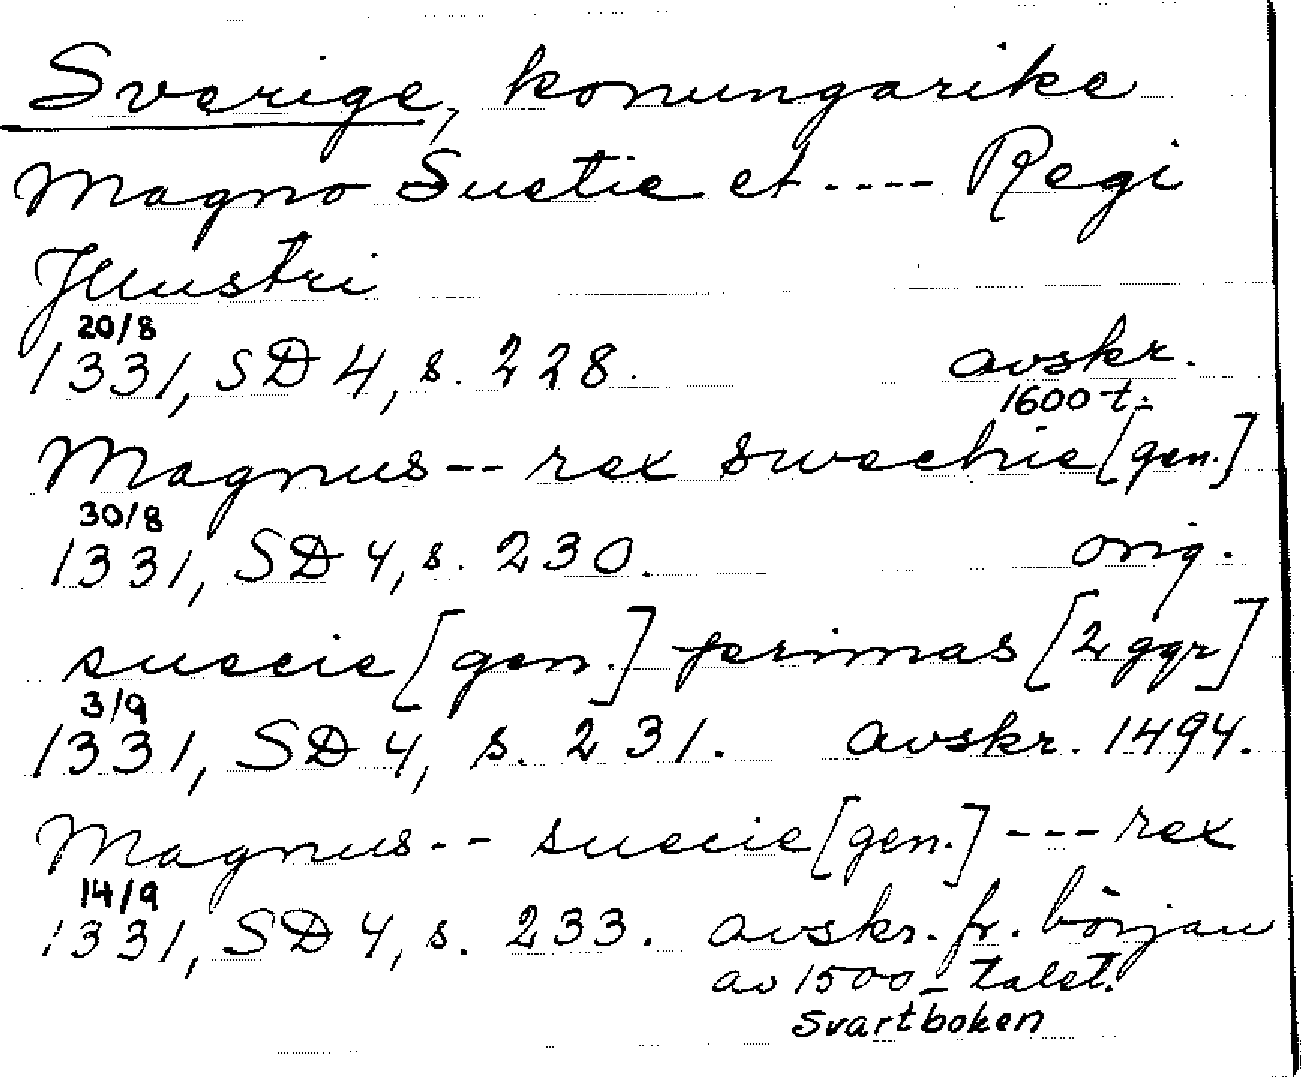 Sverige, konungarike
Magno Suetie et ---- Regi
Illustri
20/8
1331, SD 4, s. 228. avskr.
1600-t.
Magnus -- rex swechie [gen.]
30/8
1331, SD 4, s. 230. orig.
suecie [gen.] primas [2 ggr]
3/9
1331, SD 4, s. 231. avskr. 1494.
Magnus -- suecie [gen.] --- rex
14/9
1331, SD 4, s. 233. avskr. fr. början
av 1500-talet.
Svartboken